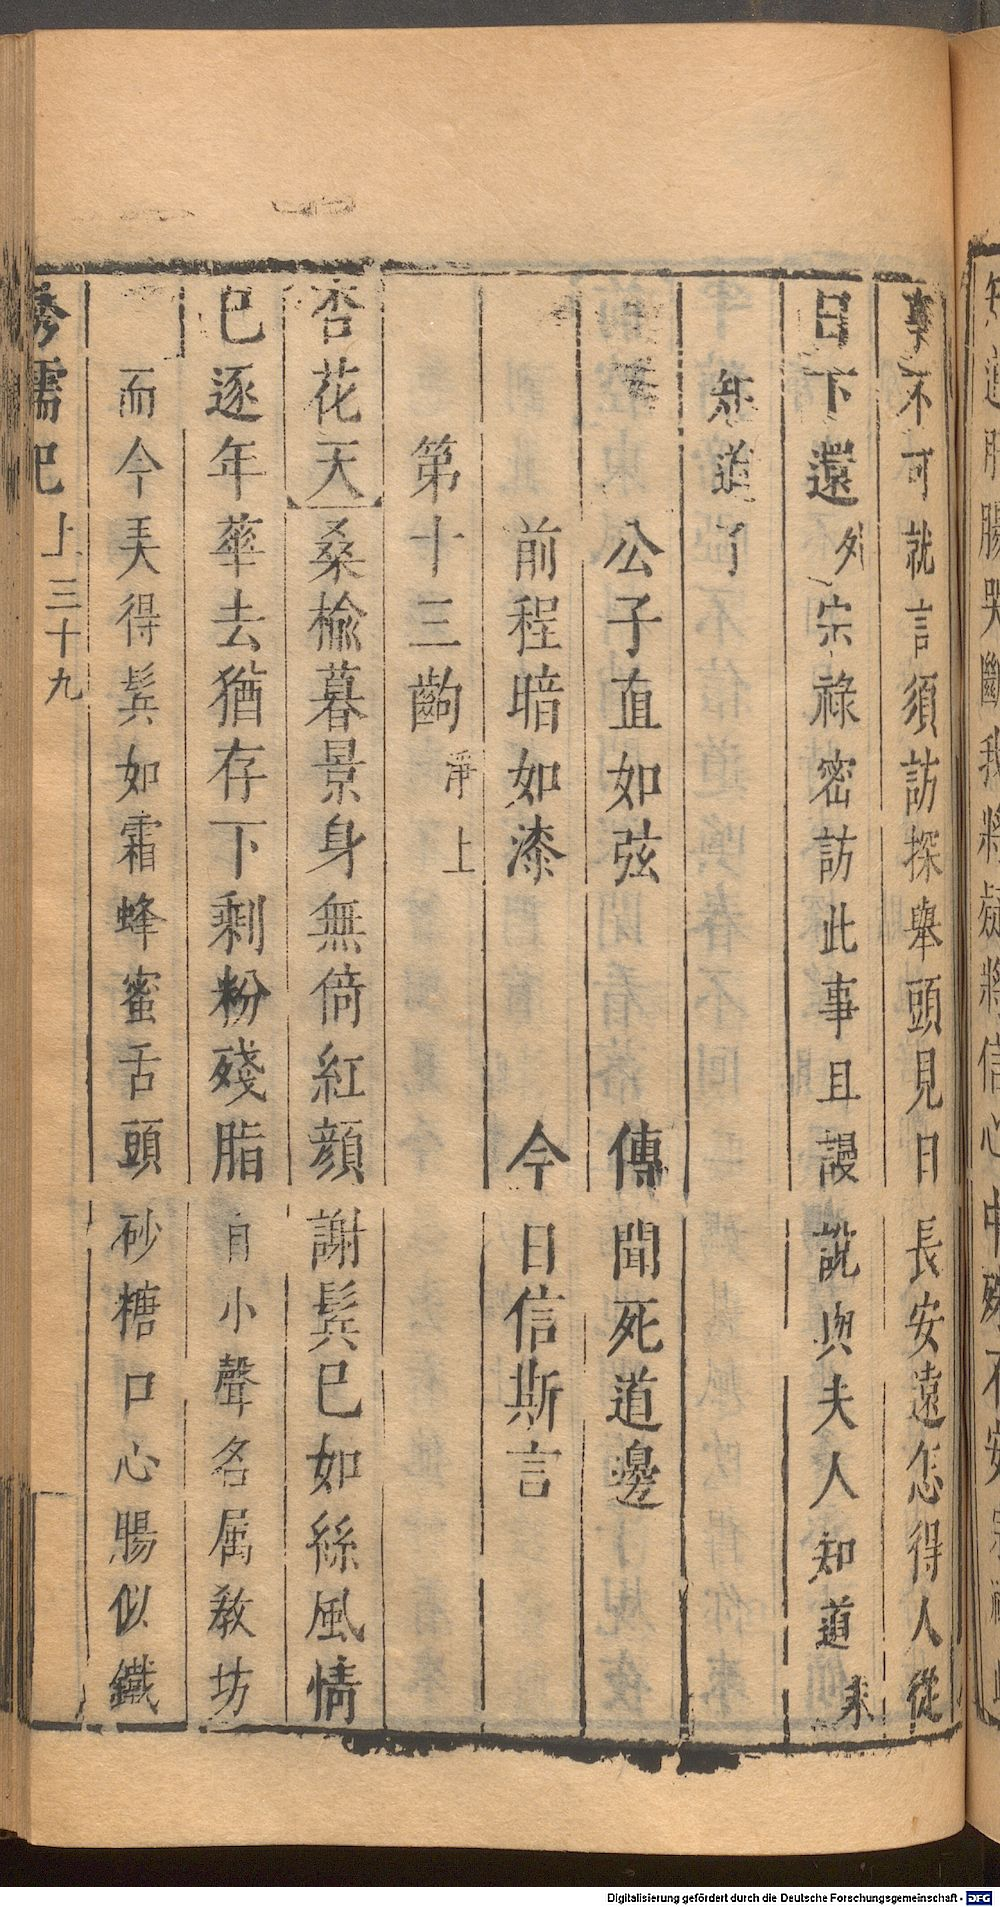 事不可就言須訪探舉頭見日長安遠怎得人從
日下還外宗祿密訪此事且謾說與夫人知道末
知道了
公子直如弦　傳聞死道邊
前程暗如漆　今日信斯言
第十三齣淨上
杏花天桑楡暮景身無倚紅顏謝鬂已如絲風情
已逐年華去猶存下剩粉殘脂自小聲名属敎坊
而今美得鬂如霜蜂蜜舌頭砂糖口心腸似鐵
綉襦記 上 三十九
Digitalisierung gefördert durch die Deutsche Forschungsgemeinschaft - DFG